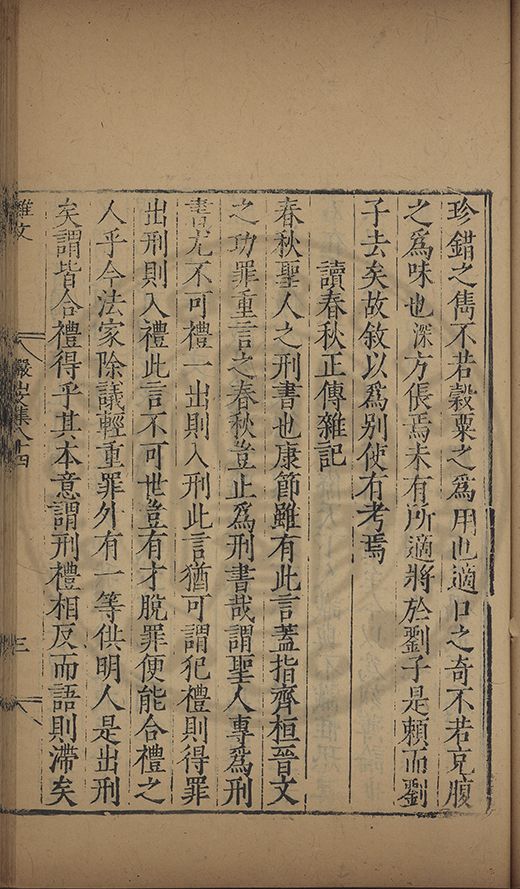 珍錯之雋不若穀粟之為用也適口之奇不若充腹
之為味也深方倀焉未有所適將於劉子是賴而劉
子去矣故敘以為別使有考焉
讀春秋正傳雜記
春秋聖人之刑書也康節雖有此言蓋指齊桓晉文
之功罪重言之春秋豈止為刑書哉謂聖人專為刑
書尤不可禮一出則入刑此言猶可謂犯禮則得罪
出刑則入禮此言不可世豈有才脫罪便能合禮之
人乎今法家除議輕重罪外有一等供明人是出刑
矣謂皆合禮得乎其本意謂刑禮相反而語則滯矣
雜文
集 十四
三